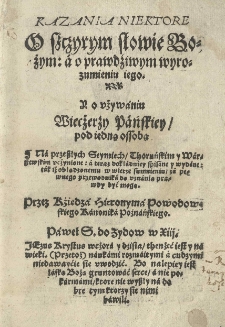 KAZANIA NIEKTORE
O szczyrym słowie Bo-
żym: á o prawdziwym wyro-
zumieniu tego.
A o vżywániu
Wieczerzy Páńskiey/
pod iedną ossobą
Ná przeszłych Seymiech/ Thoruńskim y Wár-
szewskim vczynione: á teraz dokłádniey spisáne y wydáne:
w wierze sumnieniu/ zá pe-
wnego przewodniká do vznánia praw-
dy być mogą.
Przez Kśiędzá Hieronymá Powodow-
skiego Kánoniká Poznáńskiego.
Páweł S. do Żydow w Xiij.
JEzus Krystus wczorá y dźiśia/ thenże iest y ná
wieki. (Przetoż) naukámi rozmáitymi á cudzymi
niedawaycie sie vwodźić. Bo nalepiey iest
łáską Bożą gruntowáć serce/ á nie po-
kármámi/ ktore nie wyszły ná do-
bre tym ktorzy sie nimi
báwili.